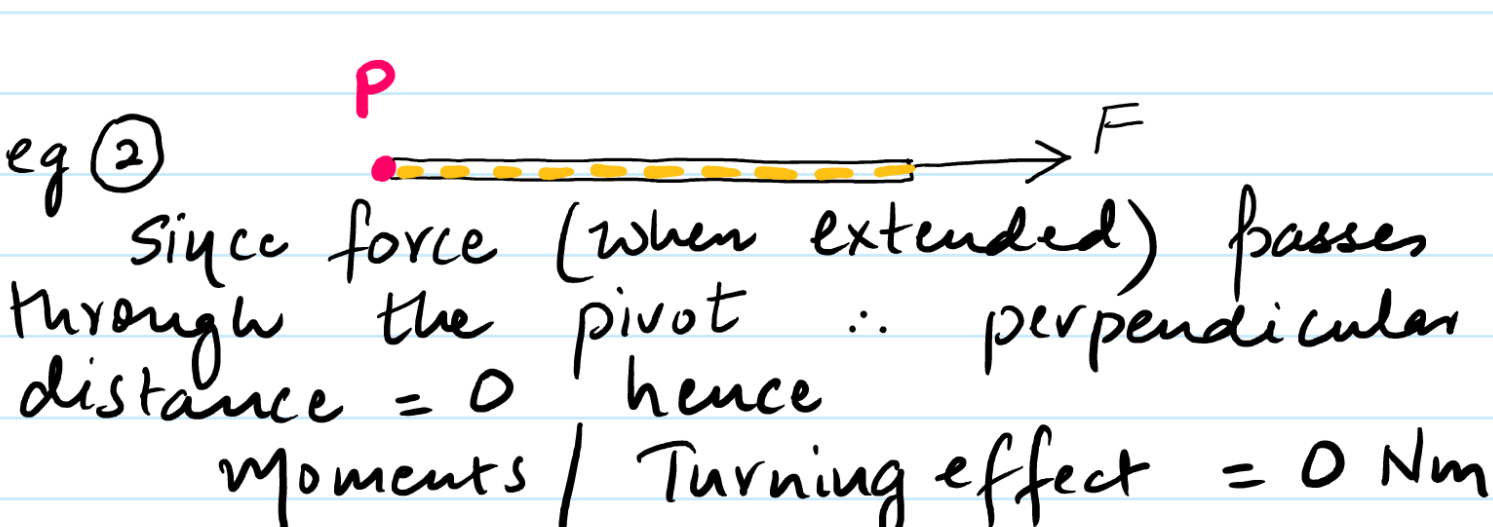 P
eg ② F
Since force (when extended) passes
through the pivot ∴ perpendicular
distance = 0 hence
Moments / Turning effect = 0 Nm